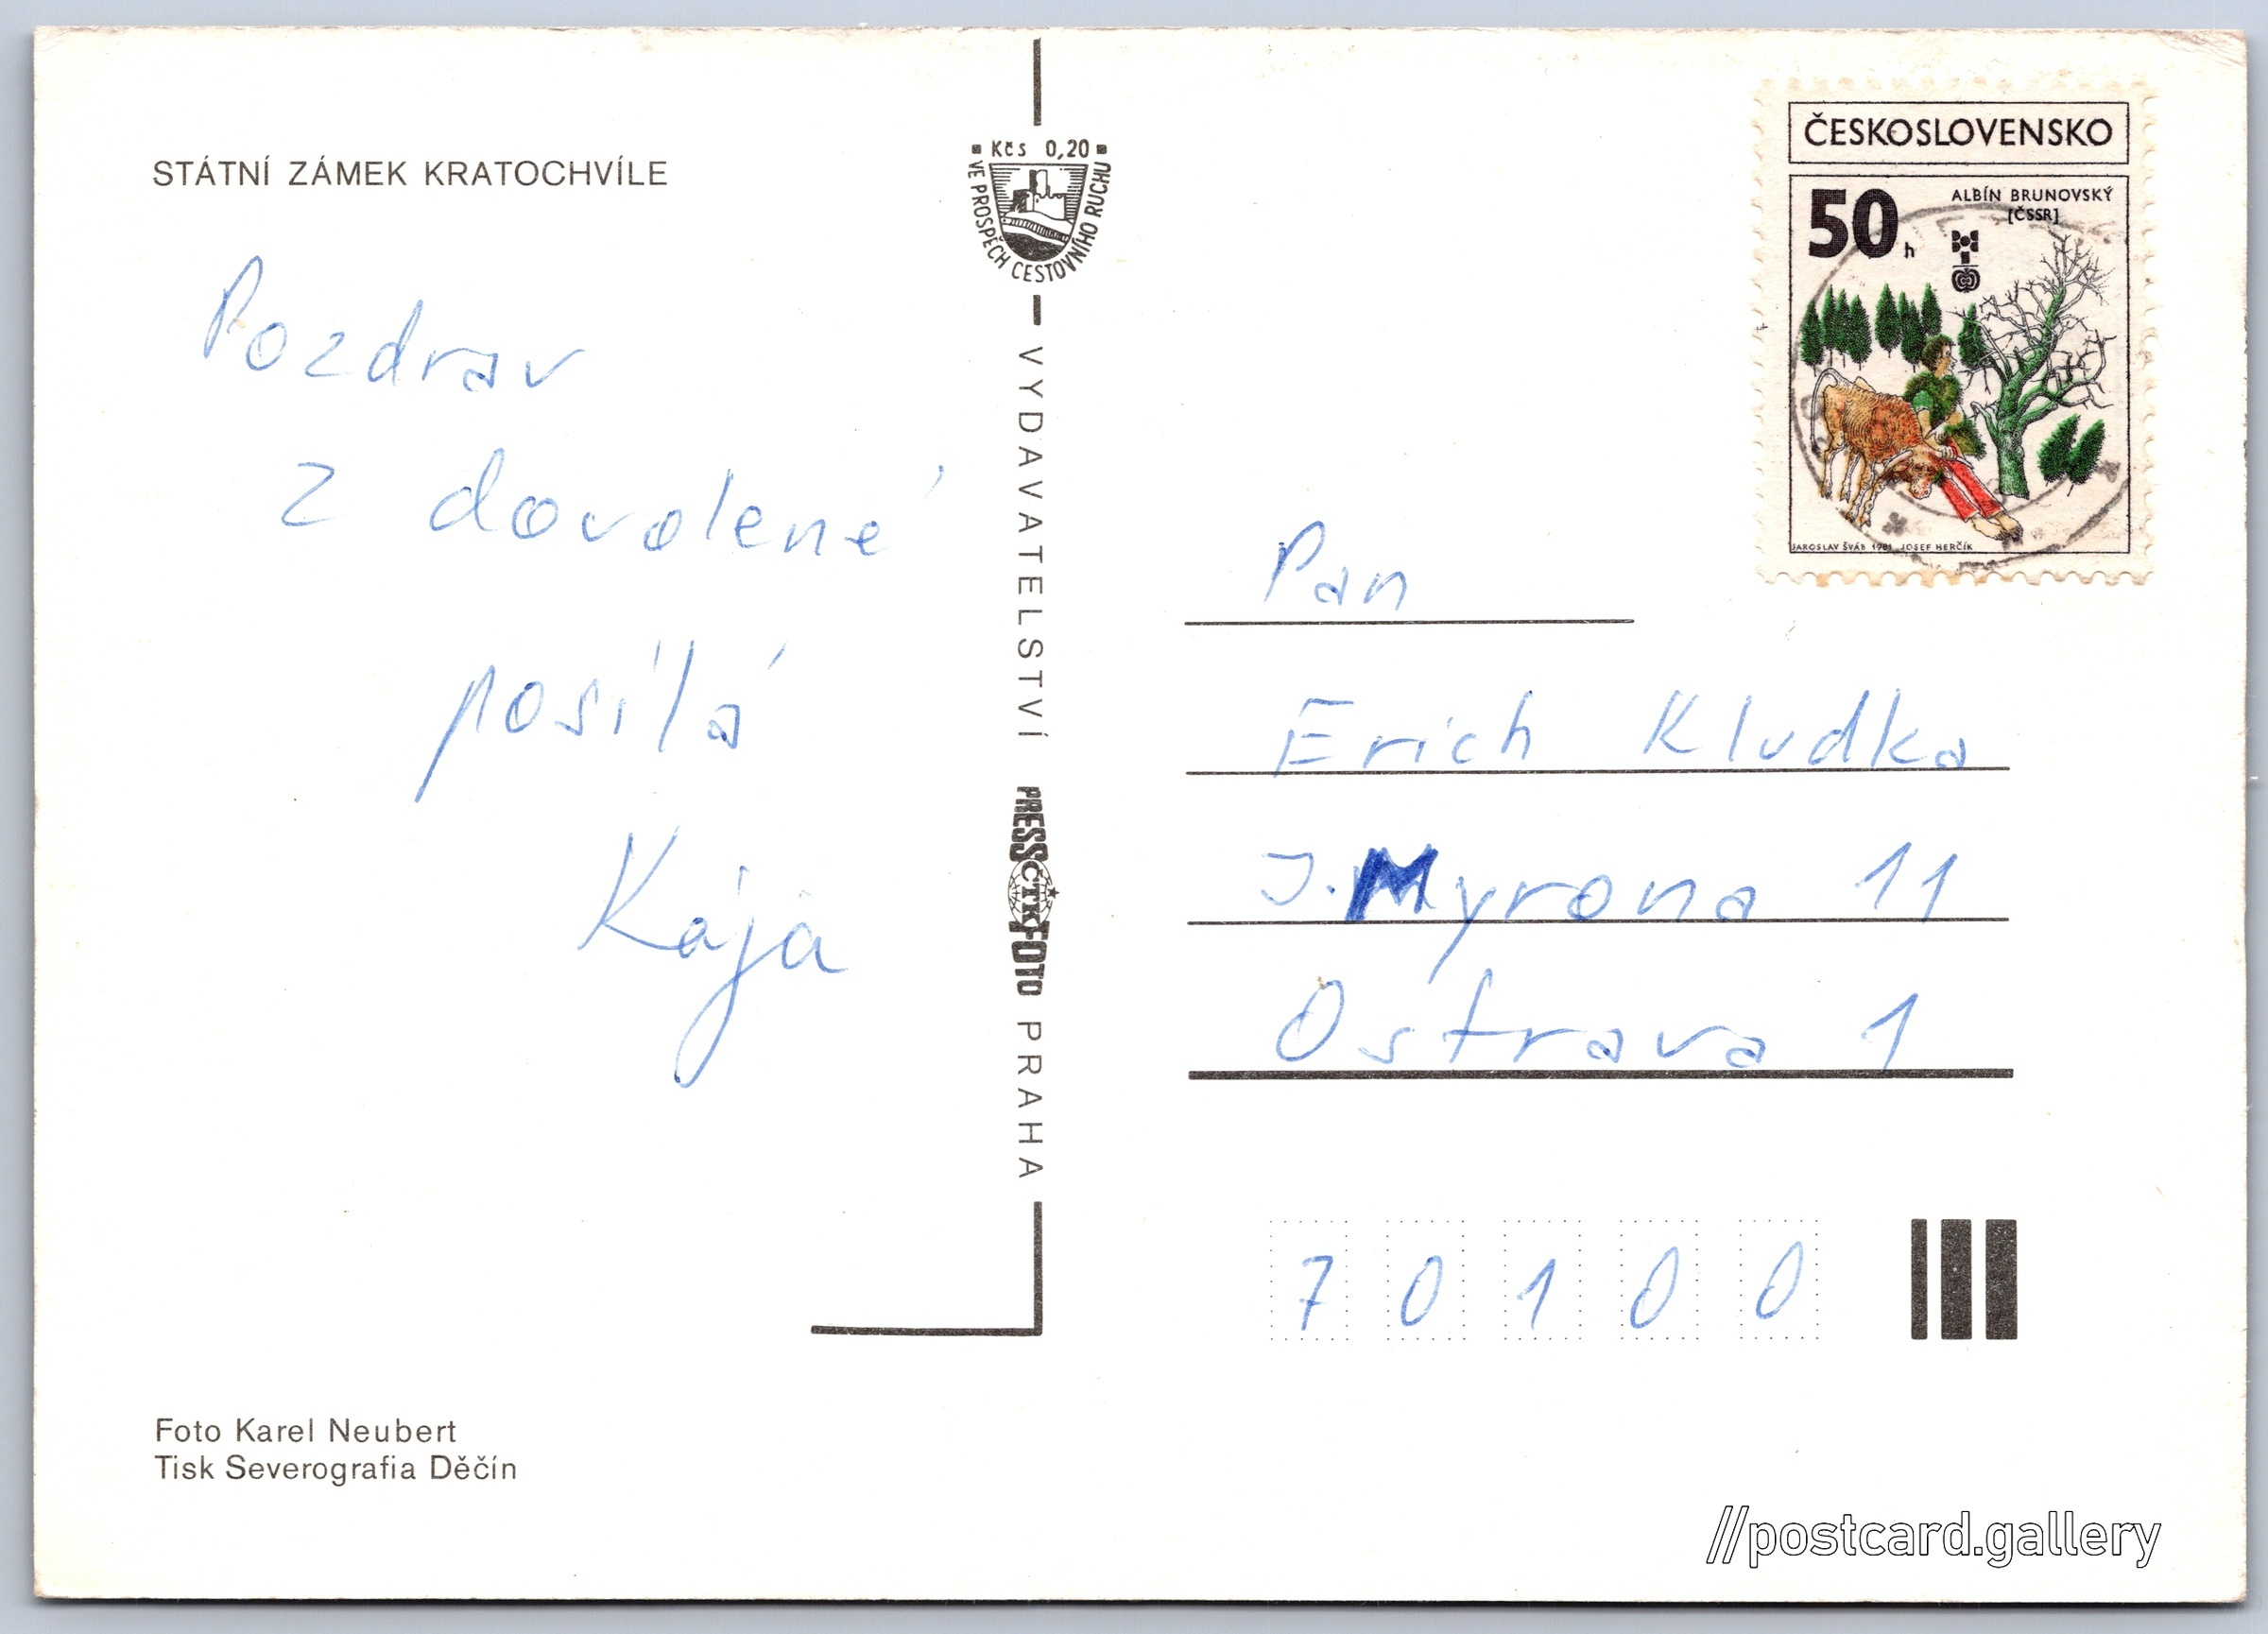 STÁTNÍ ZÁMEK KRATOCHVÍLE
Pozdrav
z dovolené
posílá
Kája
Foto Karel Neubert
Tisk Severografia Děčín
Kčs 0,20
VE PROSPĚCH CESTOVNÍHO RUCHU
VYDAVATELSTVÍ PRESSFOTO PRAHA
ČTK
ČESKOSLOVENSKO
50 h
ALBÍN BRUNOVSKÝ
[ČSSR]
JAROSLAV ŠVÁB 1981 JOSEF HERČÍK
Pan
Erich Kludka
J. Myrona 11
Ostrava 1
70100
//postcard.gallery